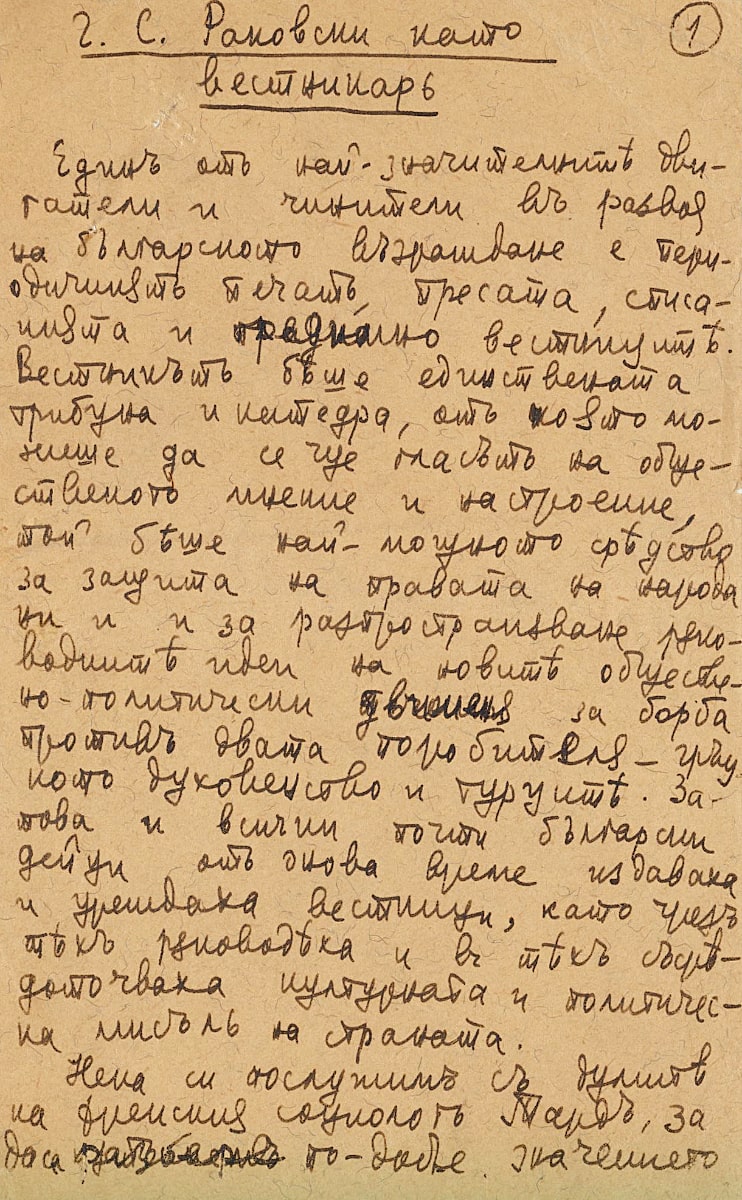 Г. С. Раковски като
вестникарь
1
Единъ отъ най-значителнитѣ дви-
гатели и чинители въ развоя
на българското възраждане е пери-
одичниятъ печатъ, пресата, списа-
нията и предимно вестницитѣ.
Вестникътъ бѣше единствената
трибуна и катедра, отъ която мо-
жеше да се чуе гласътъ на обще-
ственото мнение и настроение,
той бѣше най-мощното срѣдство
за защита на правата на народа
ни и и за разпространяване рѫко-
воднитѣ идеи на новитѣ обществе-
но-политически за борба
противъ двата поробителя – гръц
кото духовенство и турцитѣ. За-
това и всички почти български
дейци отъ онова време издаваха
и уреждаха вестници, като чрезъ
тѣхъ рѫководѣха и въ тѣхъ съсрѣ-
доточваха културната и политичес-
ка мисъль на страната.
Нека си послужимъ съ думитѣ
на френския социологъ Тардъ, за
да си по-добре значението